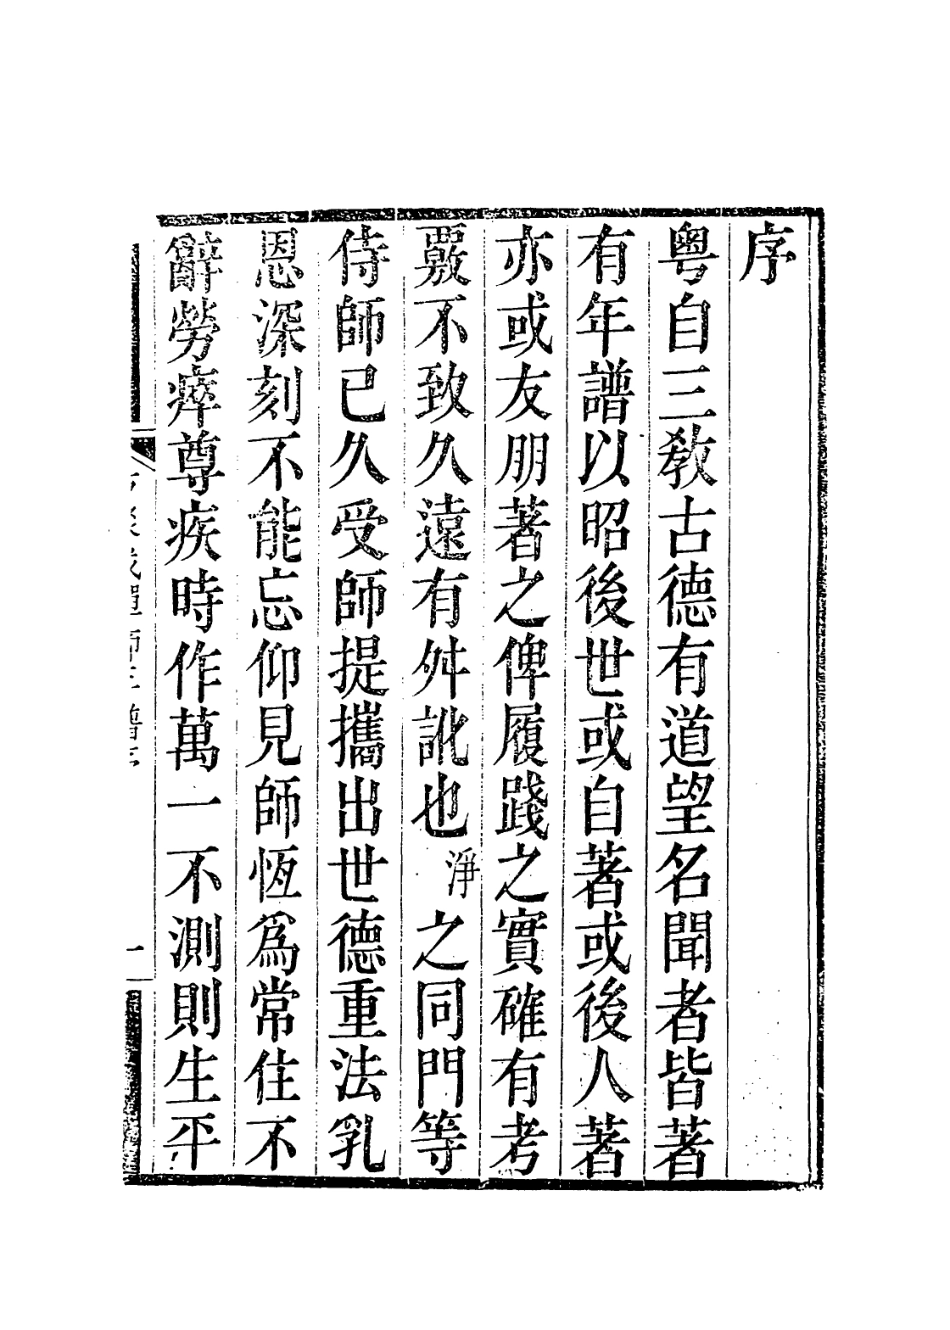 序
粤自三教古德有道望名聞者皆著
有年譜以昭後世或自著或後人著
亦或友朋著之俾履踐之實確有考
覈不致久遠有舛訛也淨之同門等
侍師已久受師提攜出世德重法乳
恩深刻不能忘仰見師恆爲常住不
辭勞瘁尊疾時作萬一不測則生平
禪師年譜序
一